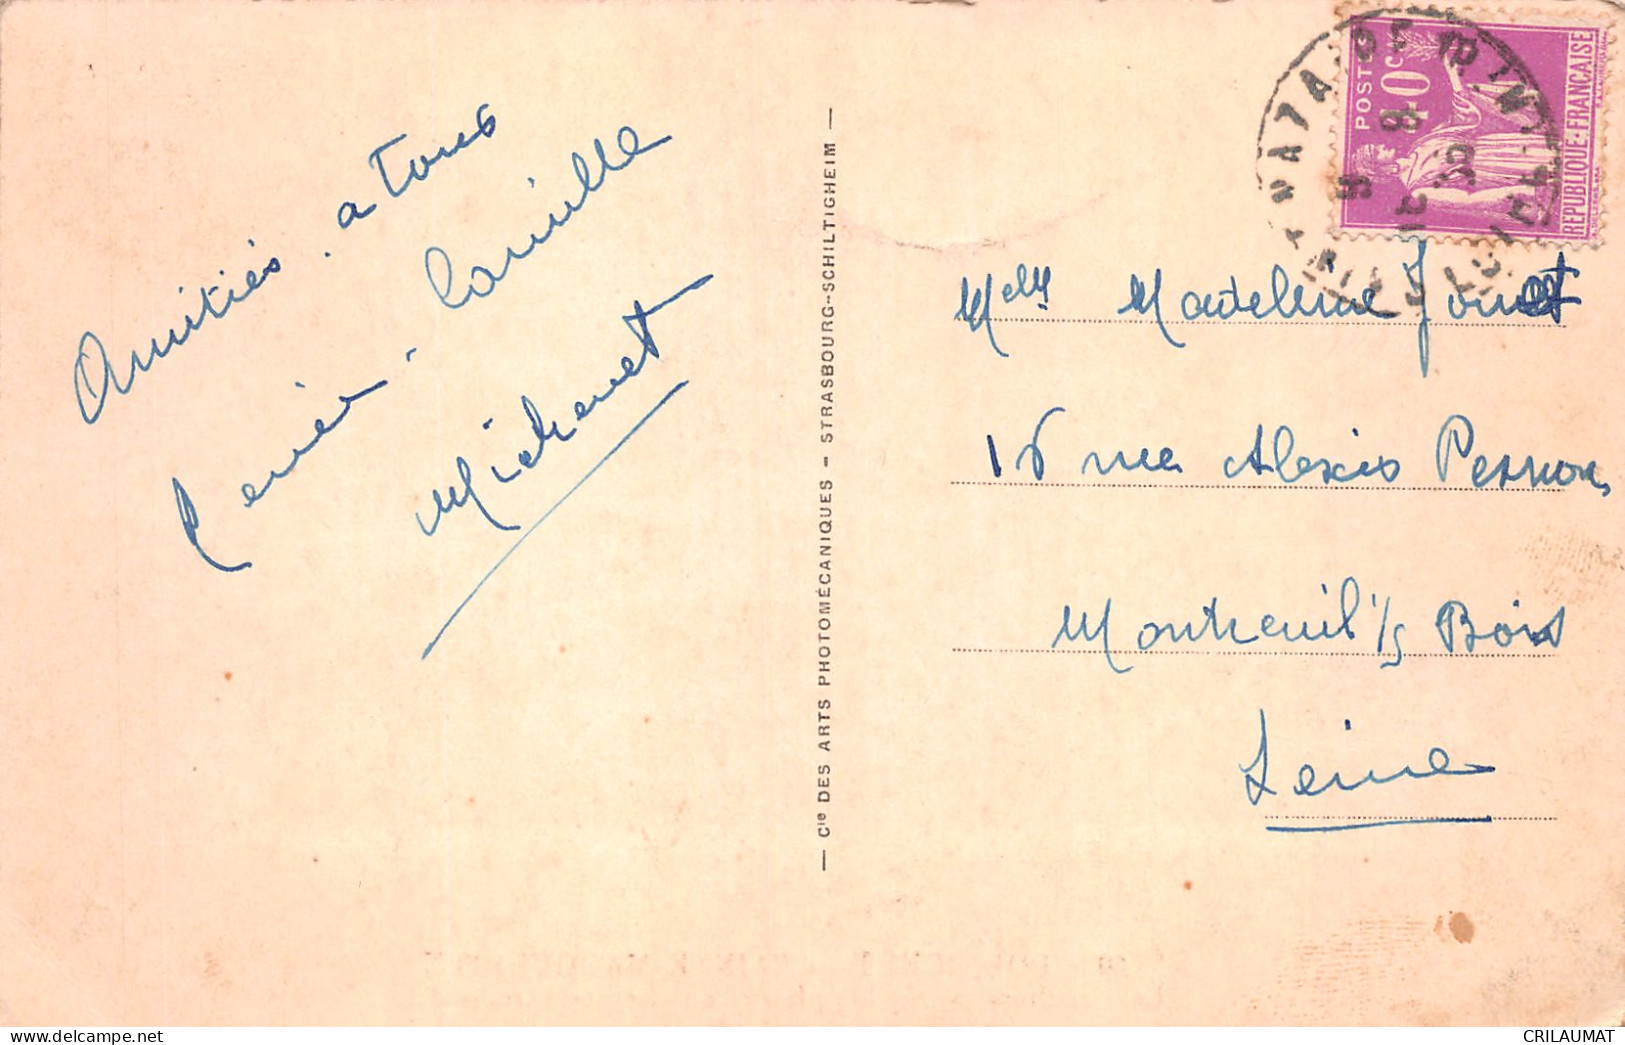 Amitiés. a tous
Camille
Michenet
— Cie DES ARTS PHOTOMÉCANIQUES - STRASBOURG-SCHILTIGHEIM —
POSTES
40 Cs
REPUBLIQUE-FRANÇAISE
Melle Madeleine Jouet
16 rue Alexis Pesnon
Montreuil s/s Bois
Seine
CRILAUMAT